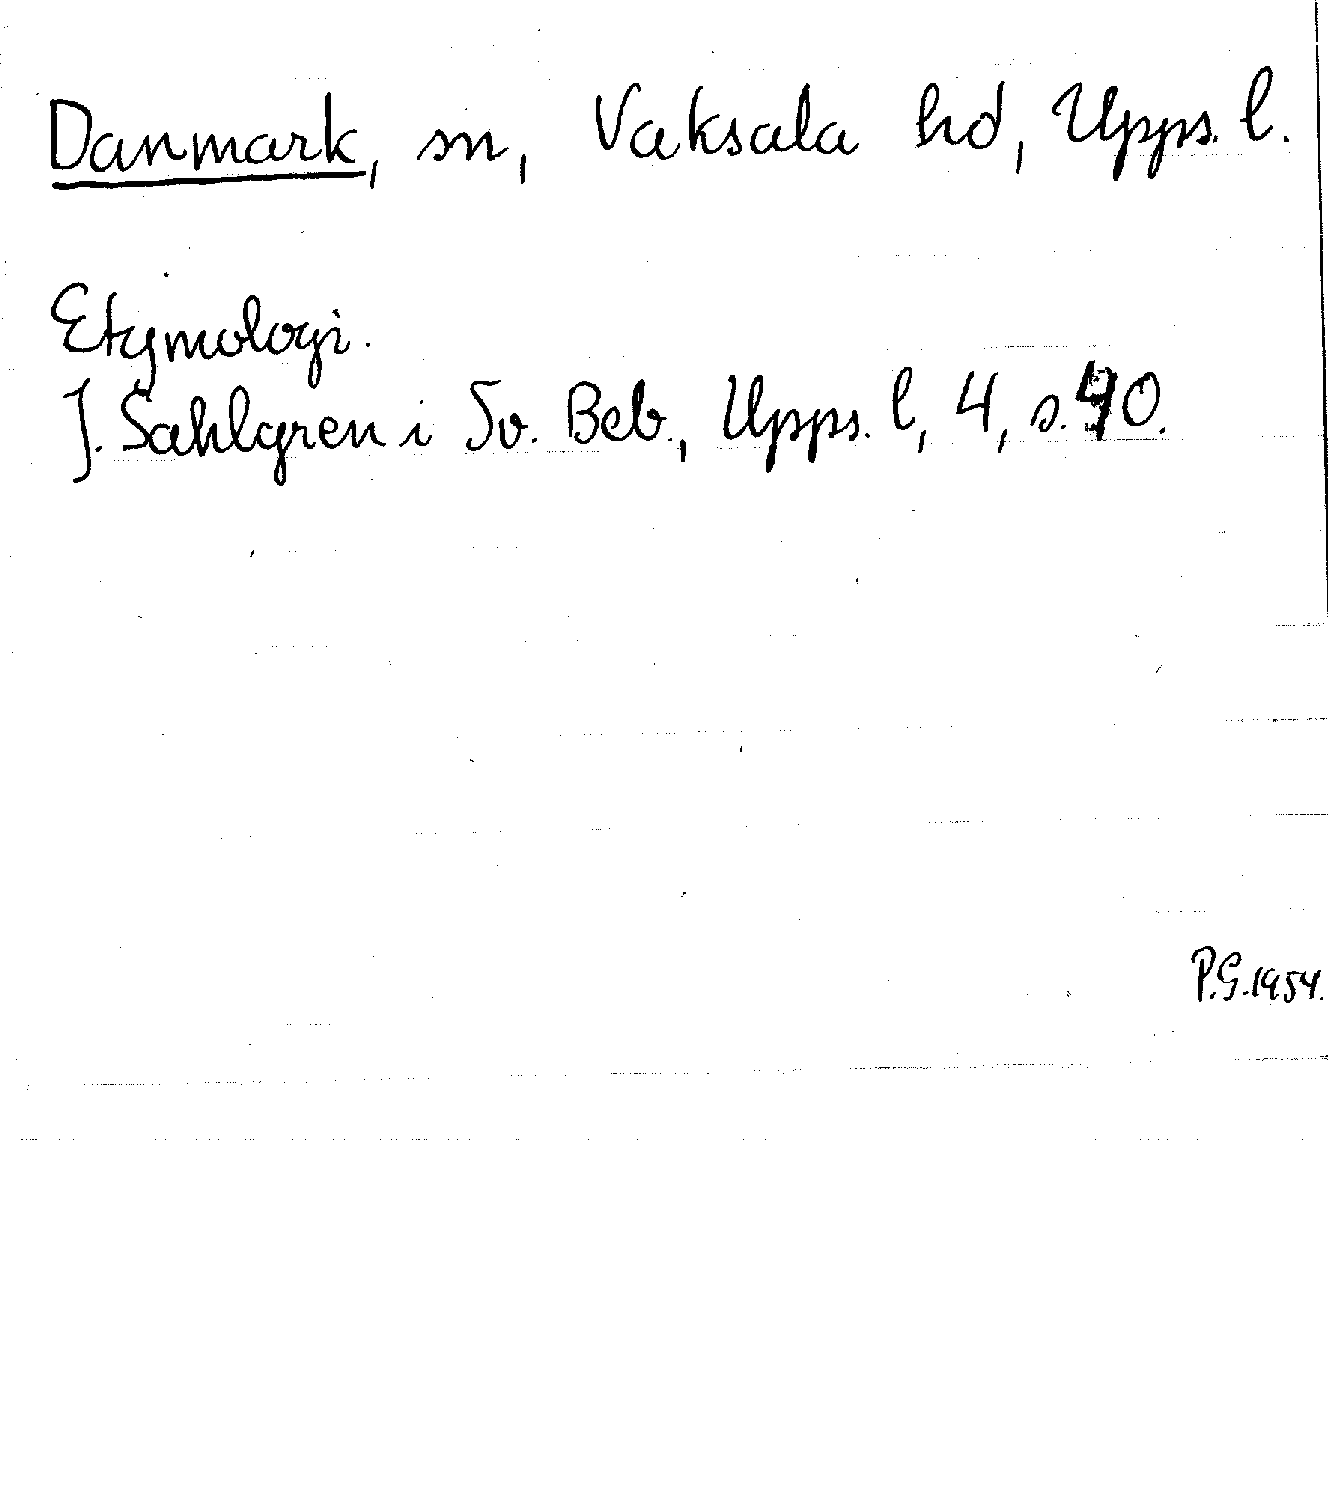 Danmark, sn, Vaksala hd, Upps. l.
Etymologi.
J. Sahlgren i Sv. Beb., Upps. l, 4, s. 40.
P.G. 1954.